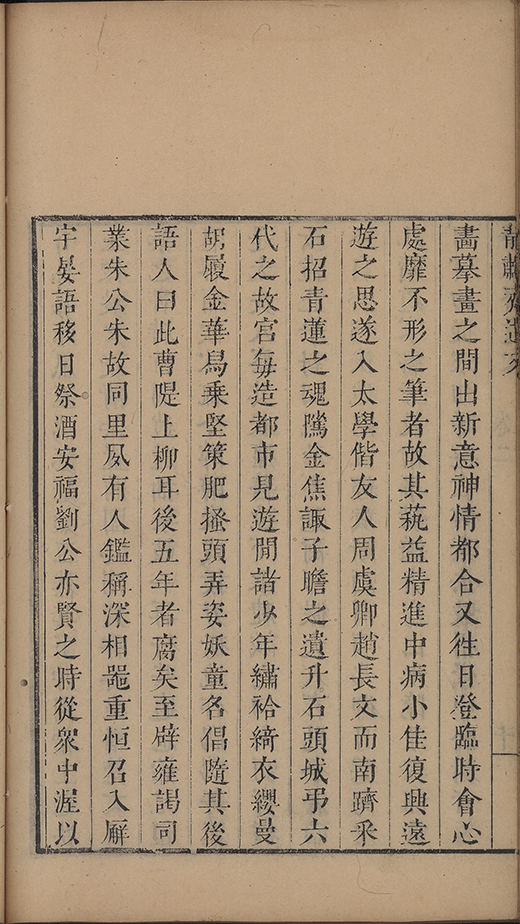 畵摹畫之間出新意神情都合又徃日澄臨時會心
處靡不形之筆者故其蓺益精進中病小佳復興遠
遊之思遂入太學偕友人周虞卿趙長文而南躋采
石招青蓮之魂隲金焦諏子瞻之遺升石頭城弔六
代之故宮每造都市見遊閒諸少年繡袷綺衣纓曼
胡履金華舄乗堅策肥搔頭弄姿妖童名倡隨其後
語人曰此曹隄上柳耳後五年者腐矣至辟雍謁司
業朱公朱故同里夙有人鑑稱深相噐重恒召入廨
宇晏語移日祭酒安福劉公亦賢之時從衆中渥以